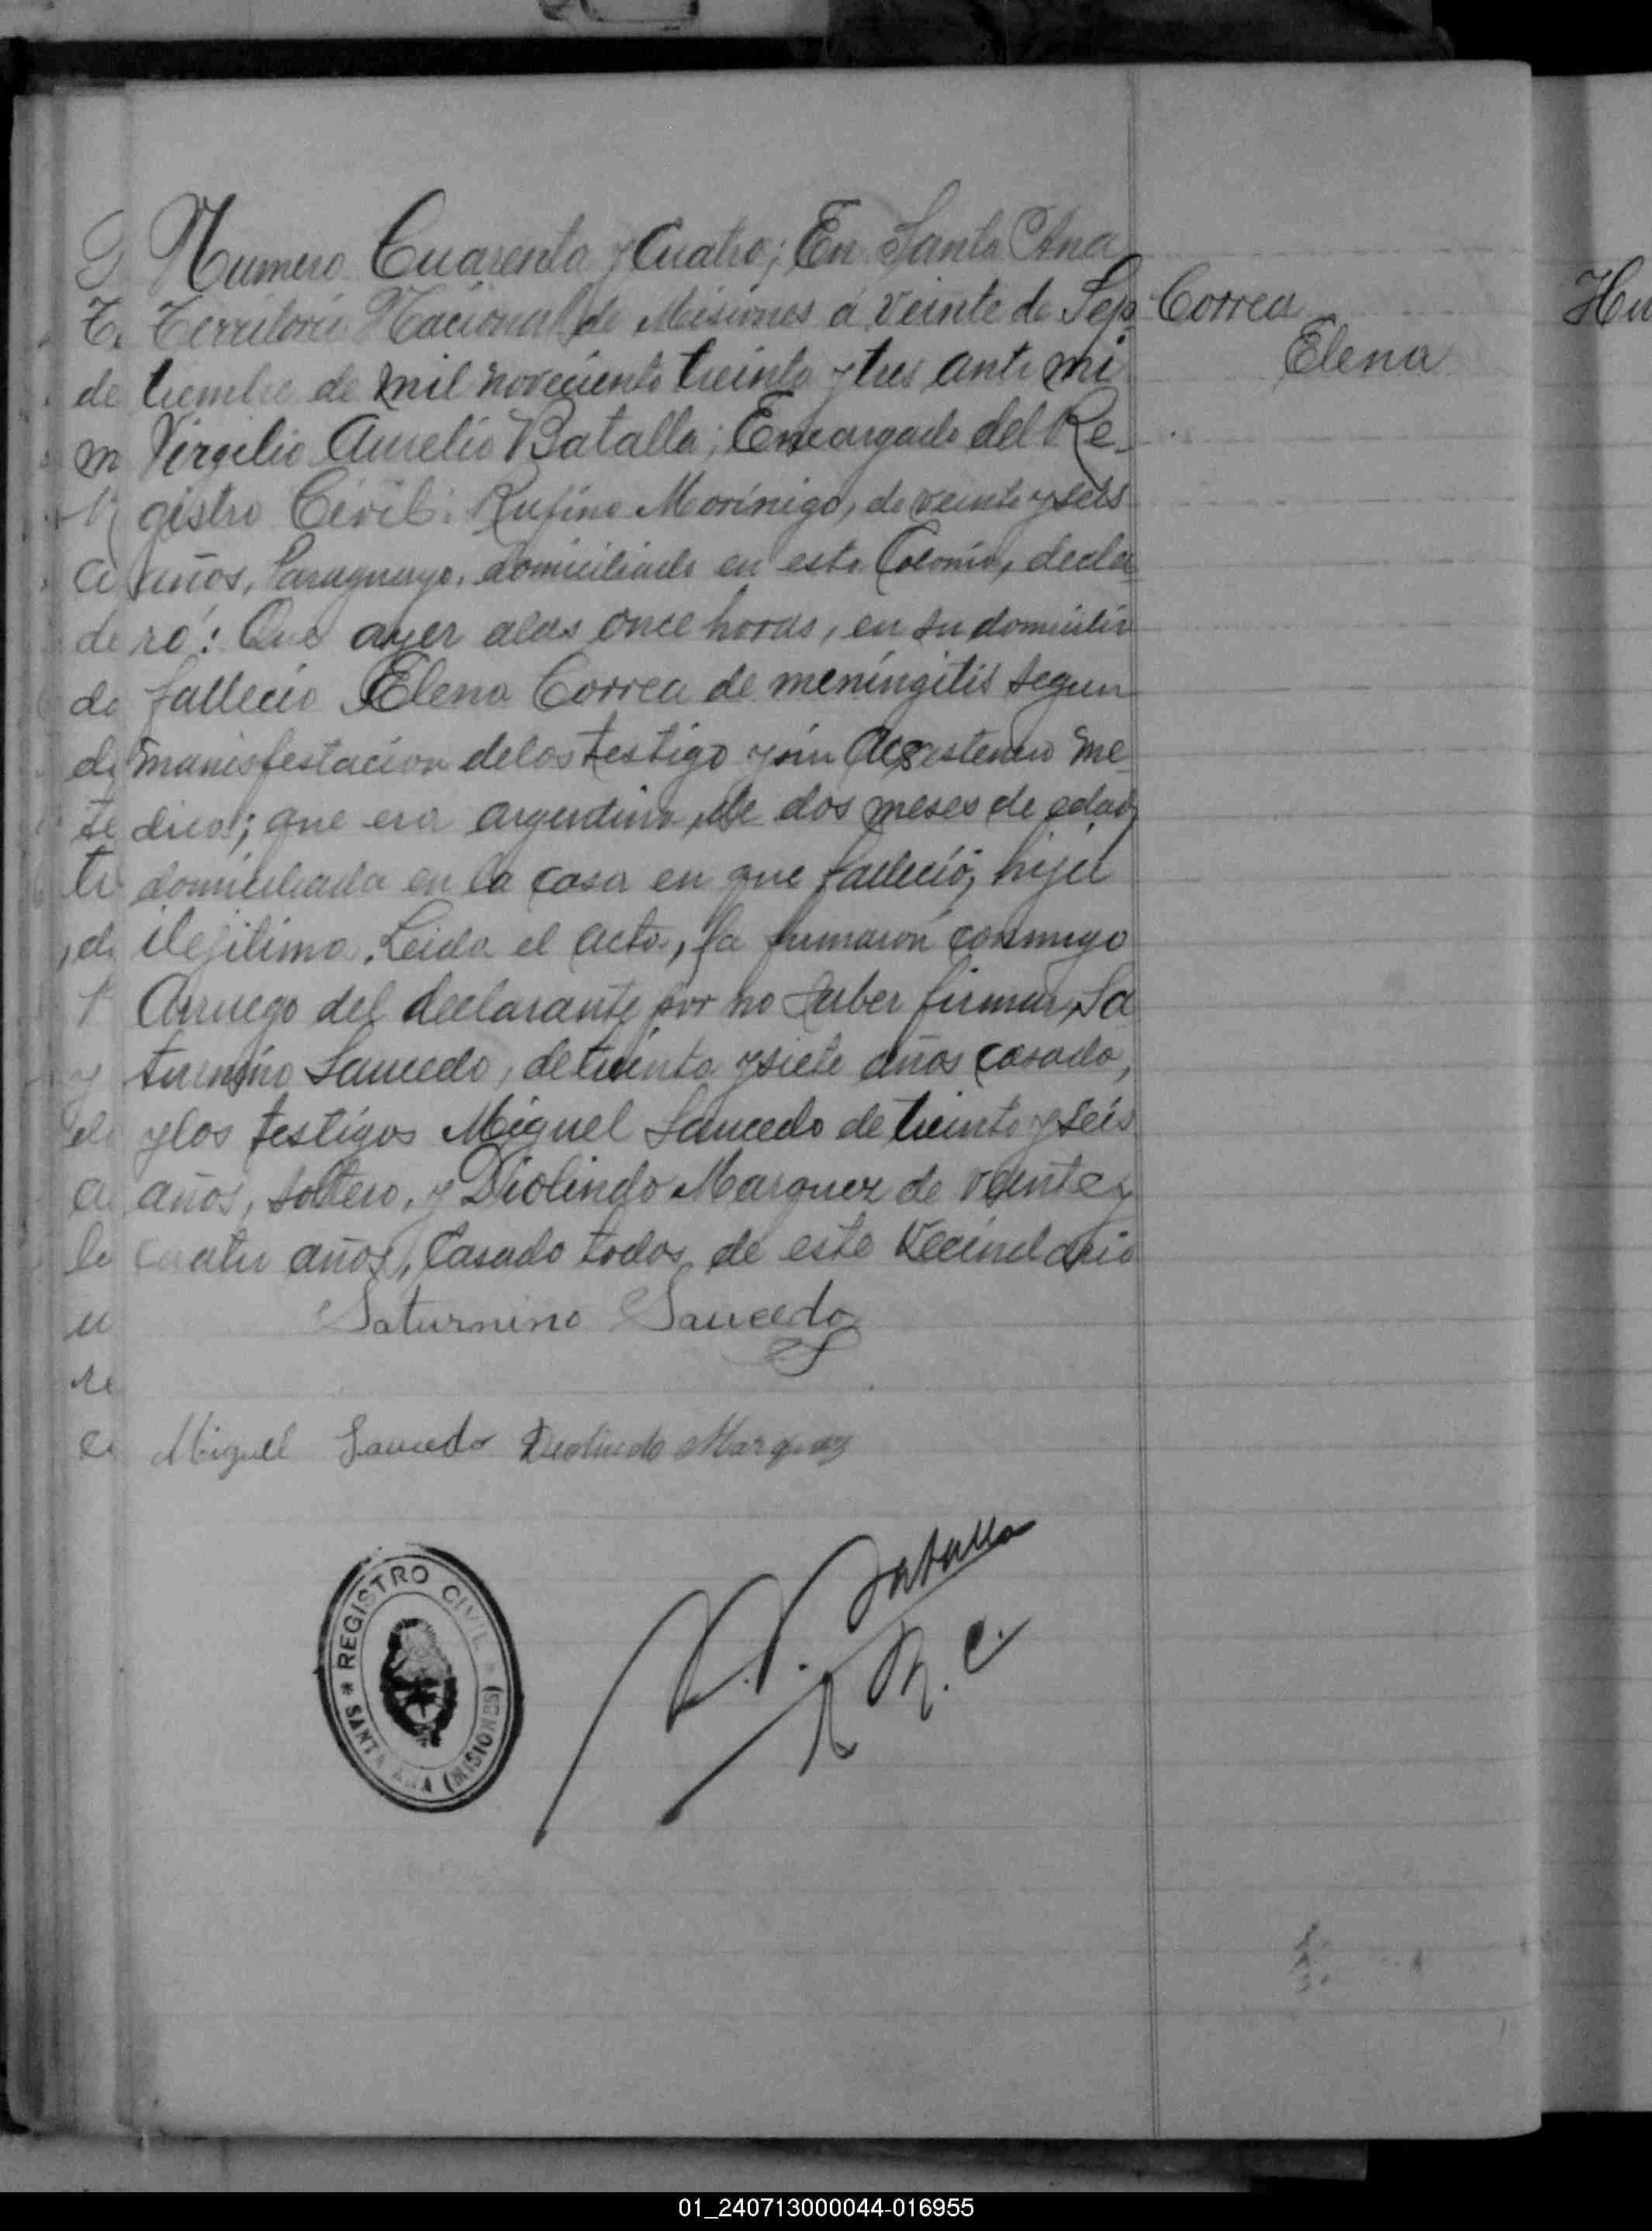 Numero Cuarenta y Cuatro; En Santa Ana
Territorio Nacional de Misiones á veinte de Sep
tiembre de mil noveciento treinta y tres ante mi
Virgilio Aurelio Batalla; Encargado del Re-
gistro Civil: Rufino Morínigo, de veinte y seis
años, Paraguayo, domiciliado en esta Colonia, decla
ró: Que ayer alas once horas, en su domicilio
fallecio Elena Correa de meningitis segun
manisfestacion delos testigo y sin asistencia me
dica; que era argentina, de dos meses de edad,
domiciliada en la casa en que falleció; hija
ilejitima. Leida el acta, la firmaron conmigo
Arruego del declarante por no saber firmar, Sa
turnino Saucedo, de treinta y siete años casado,
y los testigos Miguel Saucedo de treinta y seis
años, soltero, y Diolindo Marquez de veinte y
cuatro años, Casado todos de este Vecindario
Saturnino Saucedo
Miguel Saucedo Diolindo Marquez
Correa
Elena
Batalla
R. C.
REGISTRO CIVIL
* SANTA ANA (MISIONES)
01_240713000044-016955